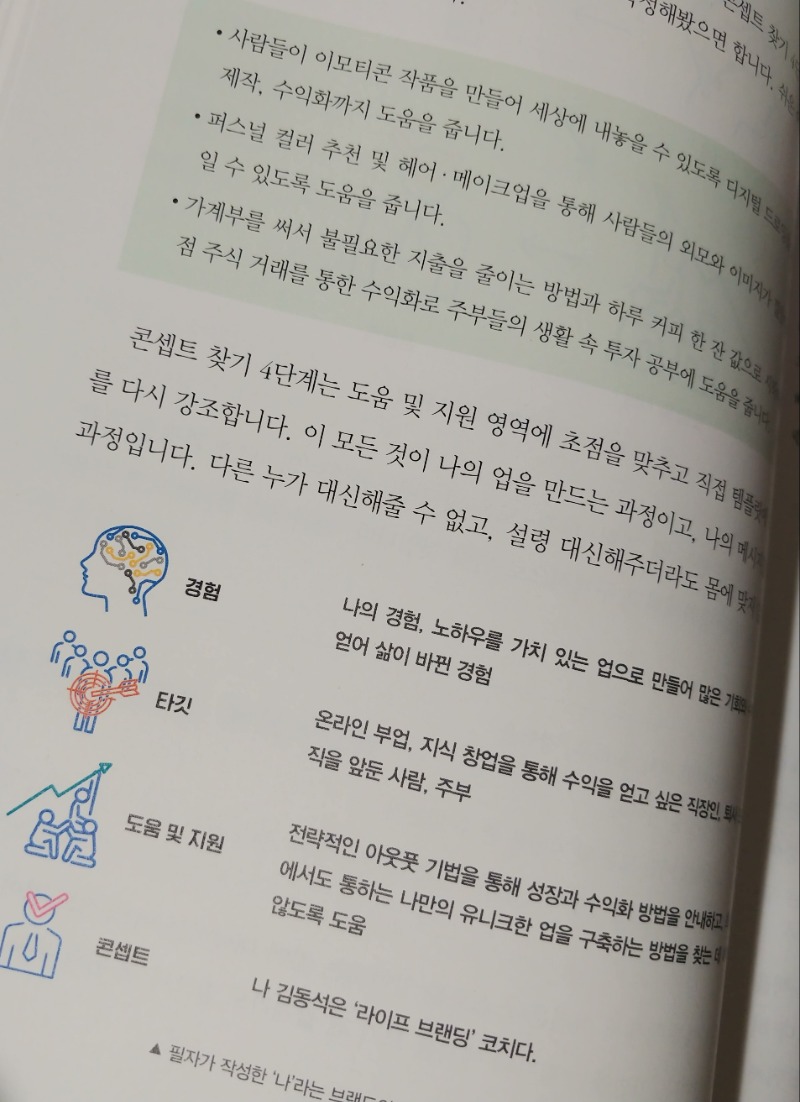 콘셉트 찾기
성해봤으면 합니다. 쉬운
• 사람들이 이모티콘 작품을 만들어 세상에 내놓을 수 있도록 디지털 드로잉
제작, 수익화까지 도움을 줍니다.
• 퍼스널 컬러 추천 및 헤어·메이크업을 통해 사람들의 외모와 이미지가
일 수 있도록 도움을 줍니다.
• 가계부를 써서 불필요한 지출을 줄이는 방법과 하루 커피 한 잔 값으로
점 주식 거래를 통한 수익화로 주부들의 생활 속 투자 공부에 도움을 줍니다
콘셉트 찾기 4단계는 도움 및 지원 영역에 초점을 맞추고 직접 템플릿
를 다시 강조합니다. 이 모든 것이 나의 업을 만드는 과정이고, 나의 메시지
과정입니다. 다른 누가 대신해줄 수 없고, 설령 대신해주더라도 몸에 맞지
경험
나의 경험, 노하우를 가치 있는 업으로 만들어 많은 기회와
얻어 삶이 바뀐 경험
타깃
온라인 부업, 지식 창업을 통해 수익을 얻고 싶은 직장인, 퇴
직을 앞둔 사람, 주부
도움 및 지원
전략적인 아웃풋 기법을 통해 성장과 수익화 방법을 안내하고,
에서도 통하는 나만의 유니크한 업을 구축하는 방법을 찾는 데
않도록 도움
콘셉트
나 김동석은 ‘라이프 브랜딩’ 코치다.
▲ 필자가 작성한 ‘나’라는